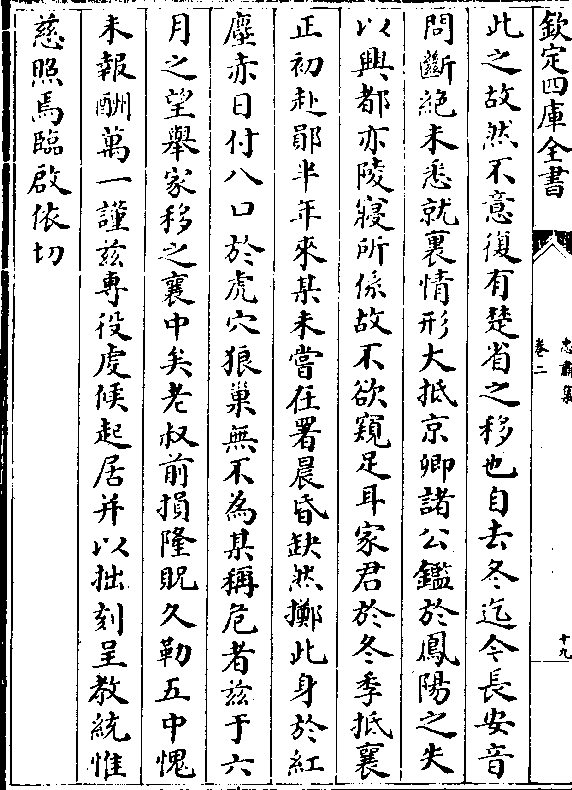 欽定四庫全書
忠肅集
卷二
十九
此之故然不意復有楚省之移也自去冬迄今長安音
問斷絶未悉就裏情形大抵京卿諸公鑑於鳳陽之失
以興都亦陵寢所係故不欲窺足耳家君於冬季抵襄
正初赴鄖半年來某未嘗在署晨昏缺然擲此身於紅
塵赤日付八口於虎穴狼巢無不為某稱危者兹于六
月之望舉家移之襄中矣老叔前損隆貺久勒五中愧
未報酬萬一謹兹専役䖍候起居并以拙刻呈教統惟
慈照焉臨啟依切